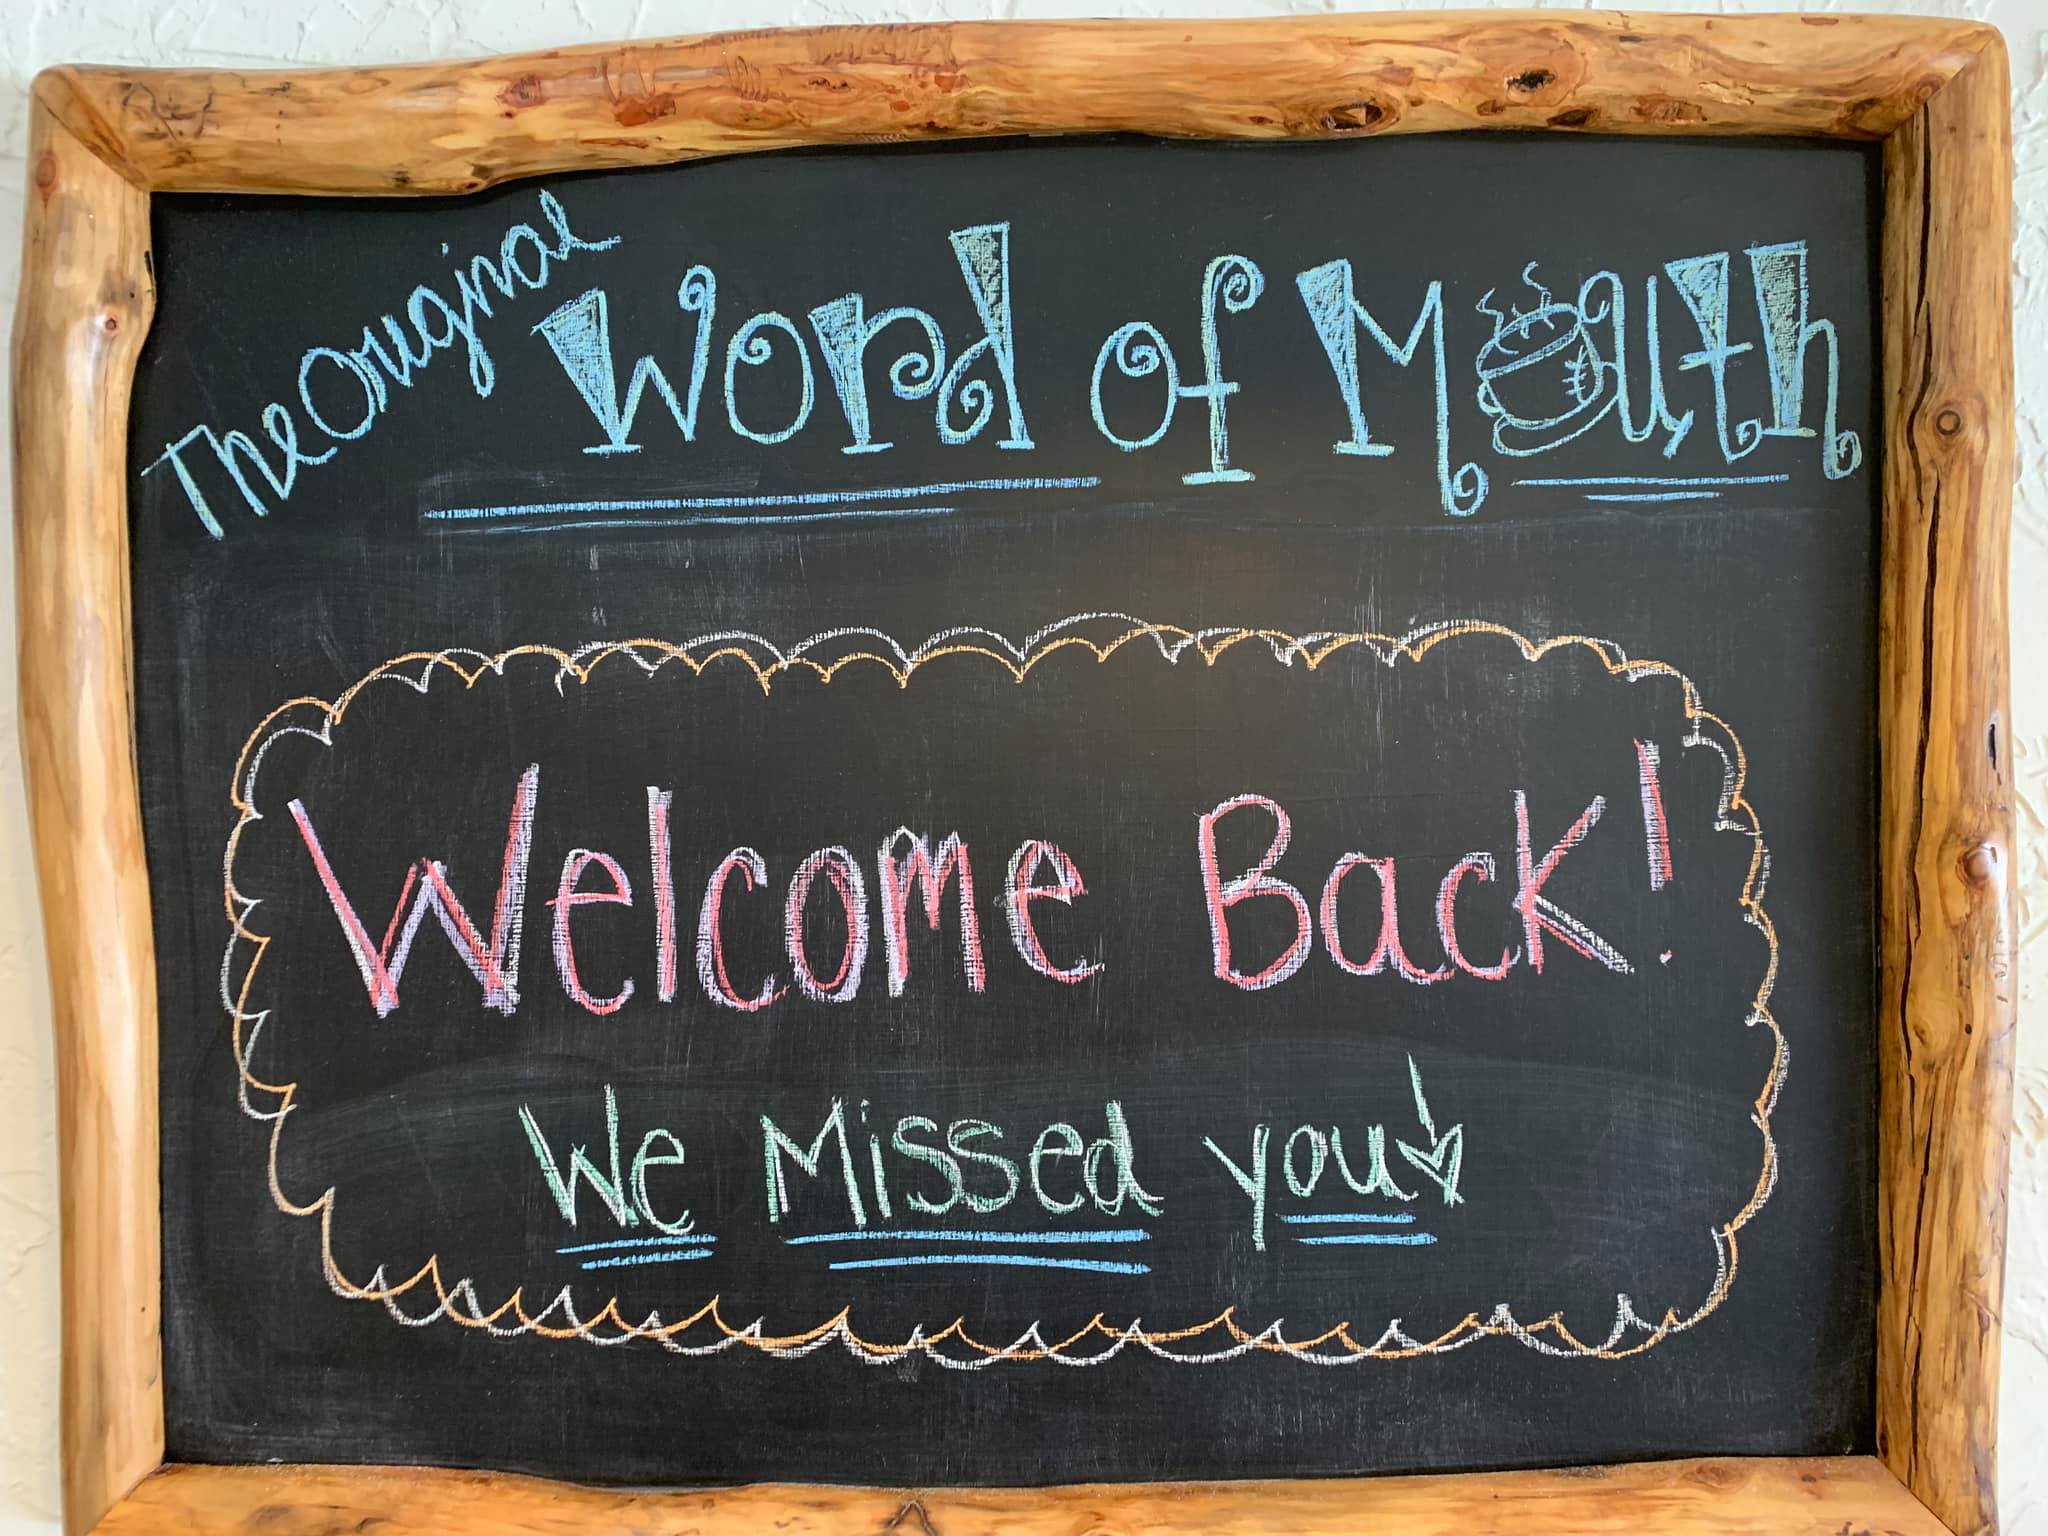 The Original Word of Mouth
Welcome Back!
We Missed you!